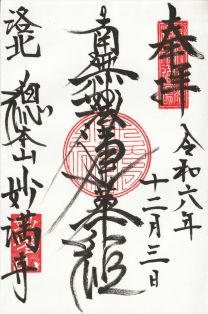 奉拝
令和六年
十二月三日
南無妙法蓮華経
洛北
総本山妙満寺